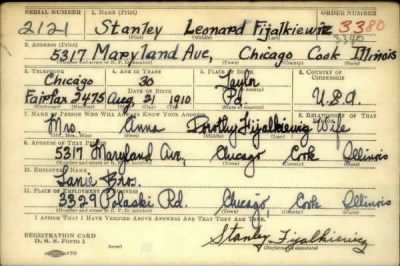 SERIAL NUMBER 1. NAME (Print) ORDER NUMBER
2121 Stanley Leonard Fijalkiewiz 3380
3340
(First) (Middle) (Last)
2. ADDRESS (Print)
5317 Maryland Ave, Chicago Cook Illinois
(Number and street or R. F. D. number) (Town) (County) (State)
3. TELEPHONE 4. AGE IN YEARS 5. PLACE OF BIRTH 6. COUNTRY OF CITIZENSHIP
Chicago 30 Taylor
DATE OF BIRTH
Fairfax 2475 Aug, 21 1910 Pa U.S.A.
(Exchange) (Number) (Mo.) (Day) (Yr.) (State or country)
7. NAME OF PERSON WHO WILL ALWAYS KNOW YOUR ADDRESS 8. RELATIONSHIP OF THAT PERSON
Mrs. Anna Dorothy Fijalkiewicz Wife
(Mr., Mrs., Miss) (First) (Middle) (Last)
9. ADDRESS OF THAT PERSON
5317 Maryland Ave, Chicago Cook Illinois
(Number and street or R. F. D. number) (Town) (County) (State)
10. EMPLOYER'S NAME
Bros.
11. PLACE OF EMPLOYMENT OR BUSINESS
3329 Polaski Rd. Chicago, Cook Illinois
(Number and street or R. F. D. number) (Town) (County) (State)
I AFFIRM THAT I HAVE VERIFIED ABOVE ANSWERS AND THAT THEY ARE TRUE.
REGISTRATION CARD
D. S. S. Form 1 Stanley Fijalkiewicz
(Registrant's signature)